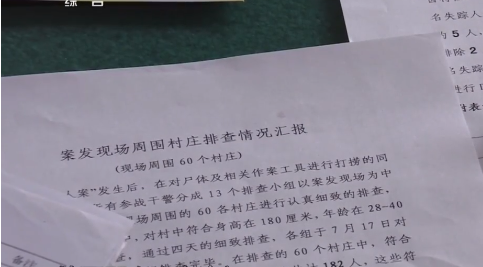 综合
名失踪人
5人，
排除2
名失踪
进行D
附表
案发现场周围村庄排查情况汇报
(现场周围60个村庄)
人案”发生后，在对尸体及相关作案工具进行打捞的同
有参战干警分成13个排查小组以案发现场为中
现场周围的60各村庄进行认真细致的排查。
，对村中符合身高在180厘米，年龄在28-40
，通过四天的细致排查，各组于7月17日对
排查完毕。在排查的60个村庄中，符合
计182人，这些符
备注